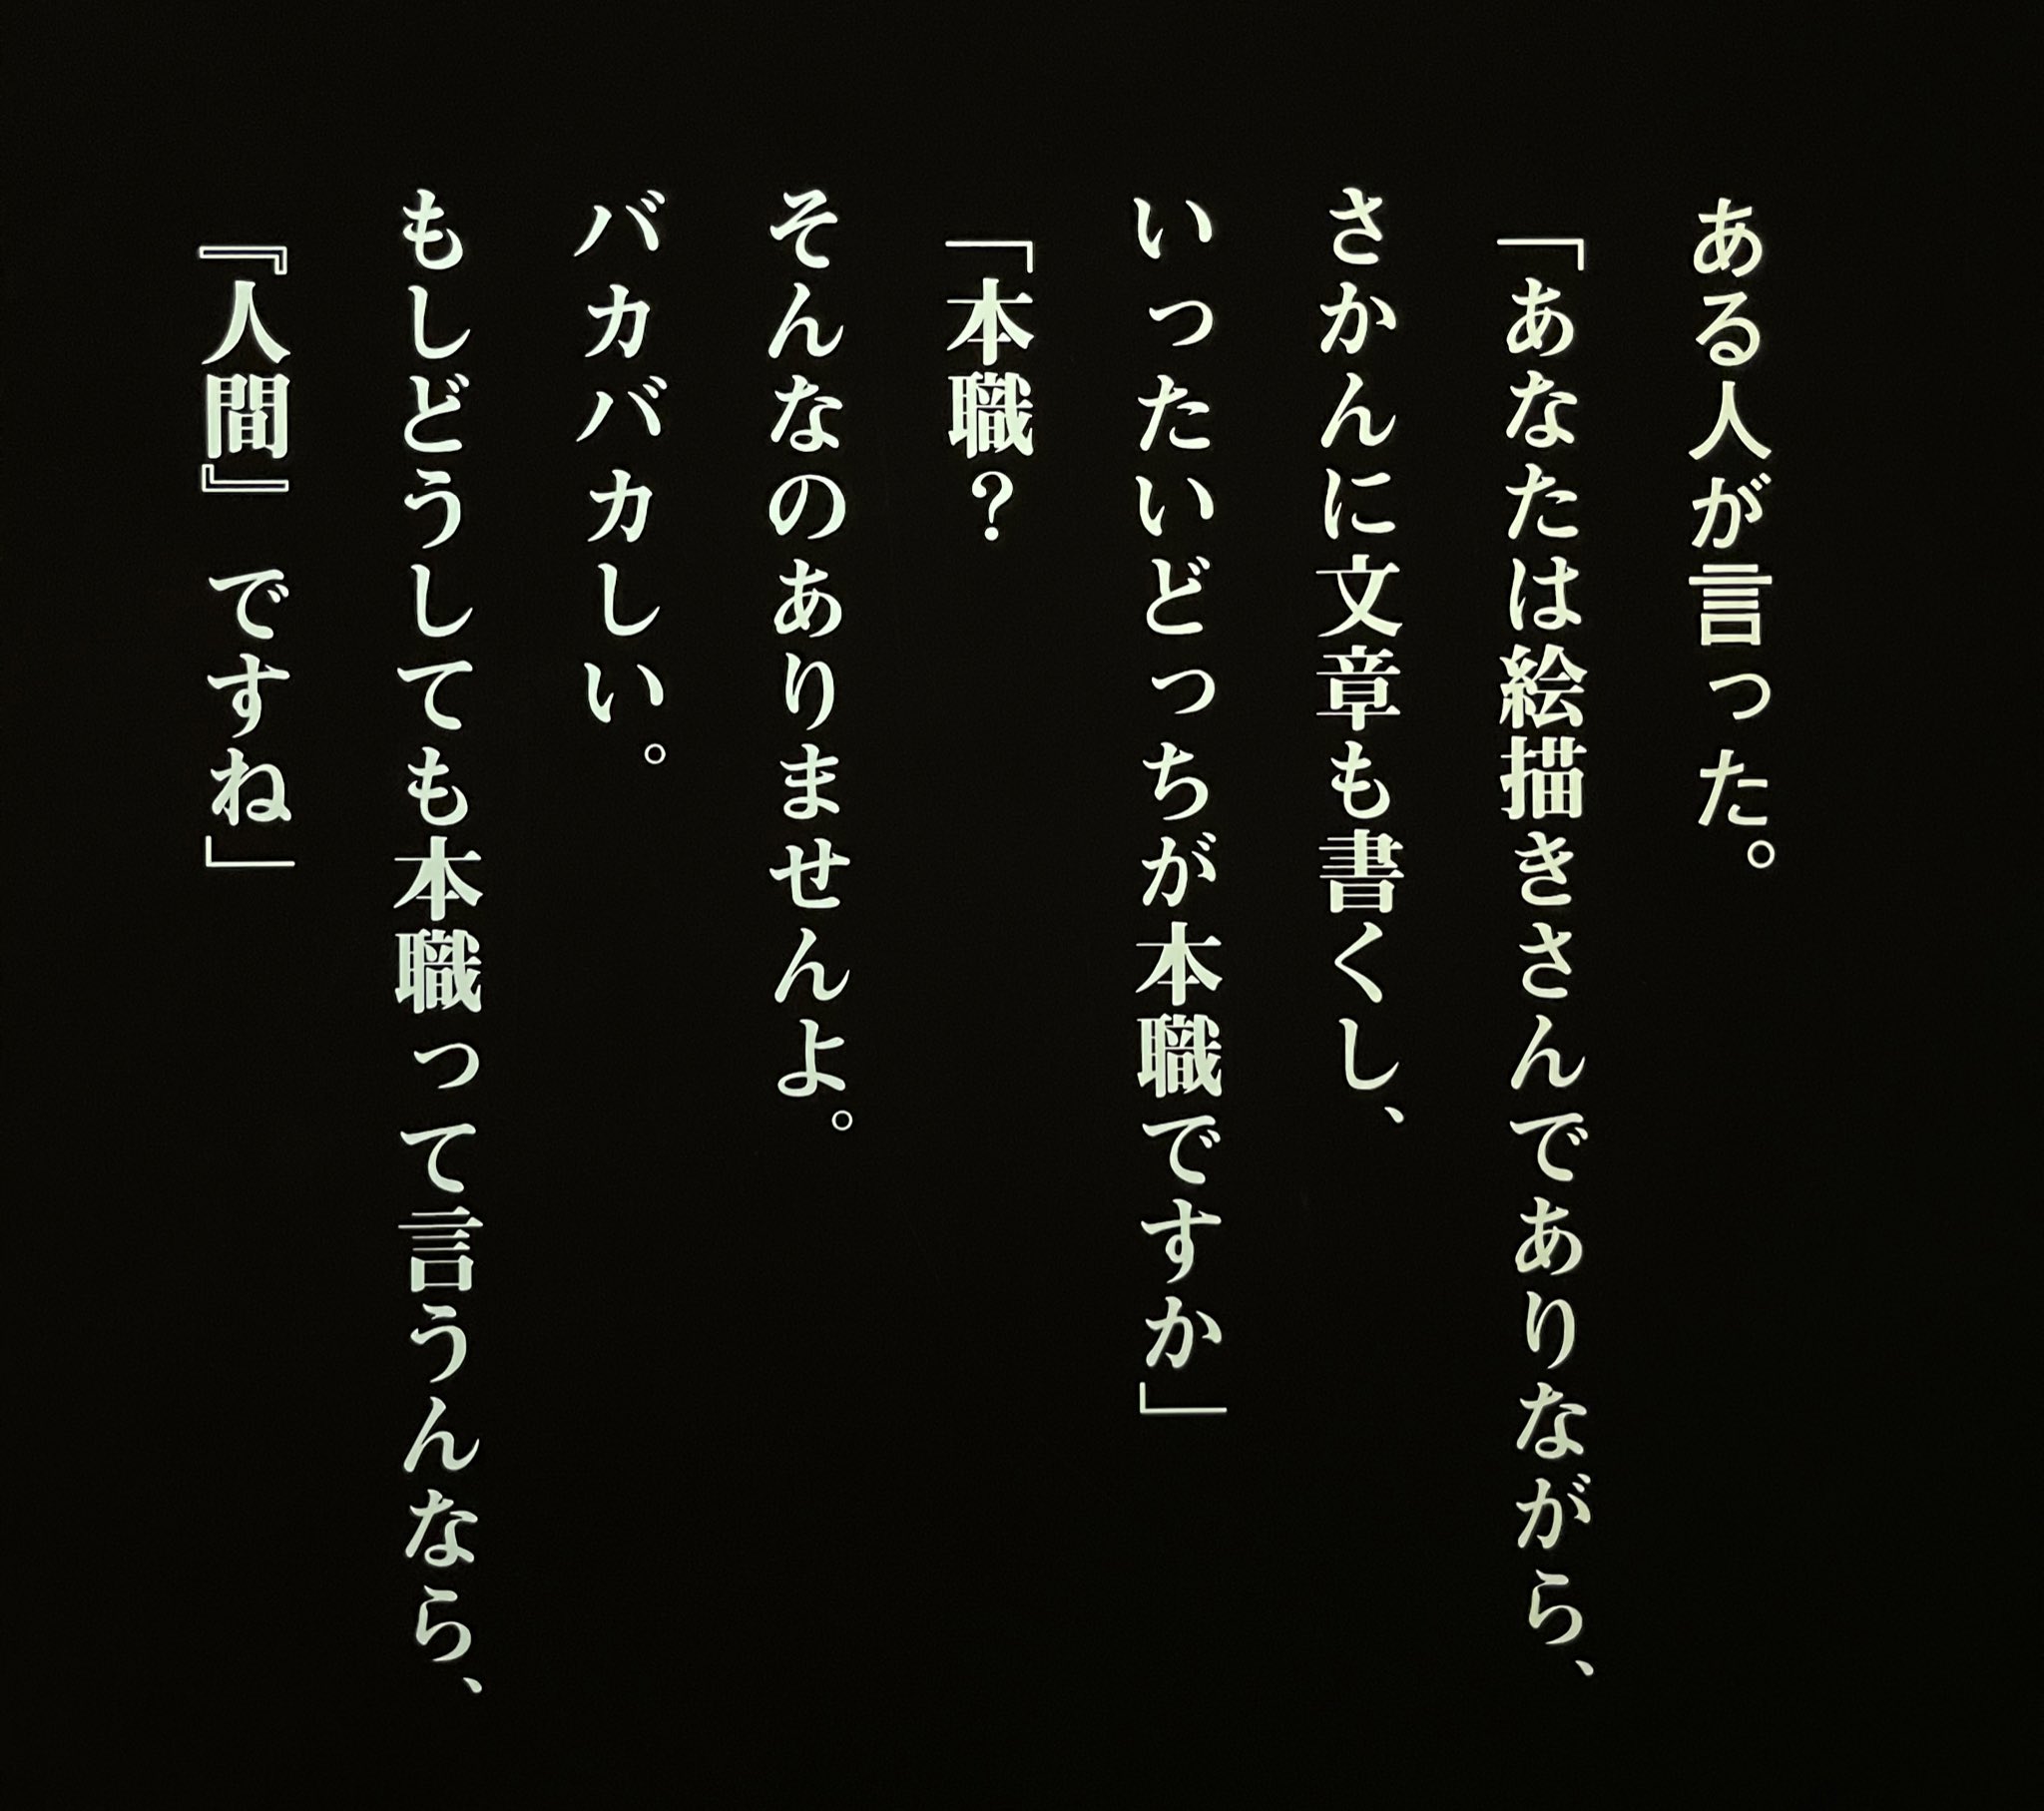 ある人が言った。
「あなたは絵描きさんでありながら、
さかんに文章も書くし、
いったいどっちが本職ですか」
「本職？
そんなのありませんよ。
バカバカしい。
もしどうしても本職って言うんなら、
『人間』ですね」